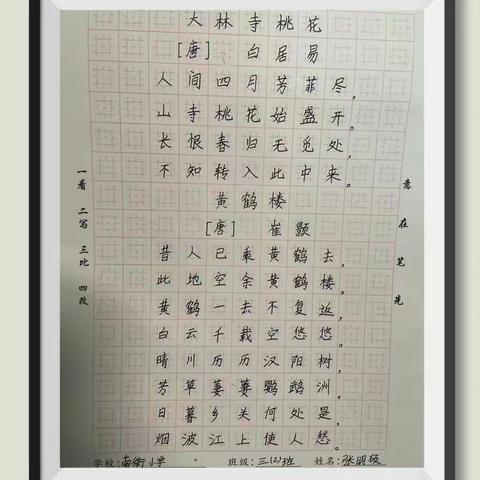 大林寺桃花
[唐] 白居易
人间四月芳菲尽,
山寺桃花始盛开。
长恨春归无觅处,
不知转入此中来。
黄鹤楼
[唐] 崔颢
昔人已乘黄鹤去,
此地空余黄鹤楼。
黄鹤一去不复返,
白云千载空悠悠。
晴川历历汉阳树,
芳草萋萋鹦鹉洲。
日暮乡关何处是,
烟波江上使人愁。
一看 二写 三比 四改
意在笔先
学校:南街小学 班级:三(2)班 姓名:张明硕